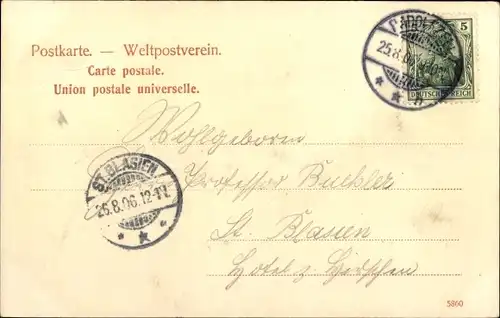 Postkarte. — Weltpostverein.
Carte postale.
Union postale universelle.
25.8.06
5
DEUTSCHES REICH
Wohlgeboren
Professor
St. Blasien
Hotel z. Hirschen
ST. BLASIEN
25.8.06.12-1
5860